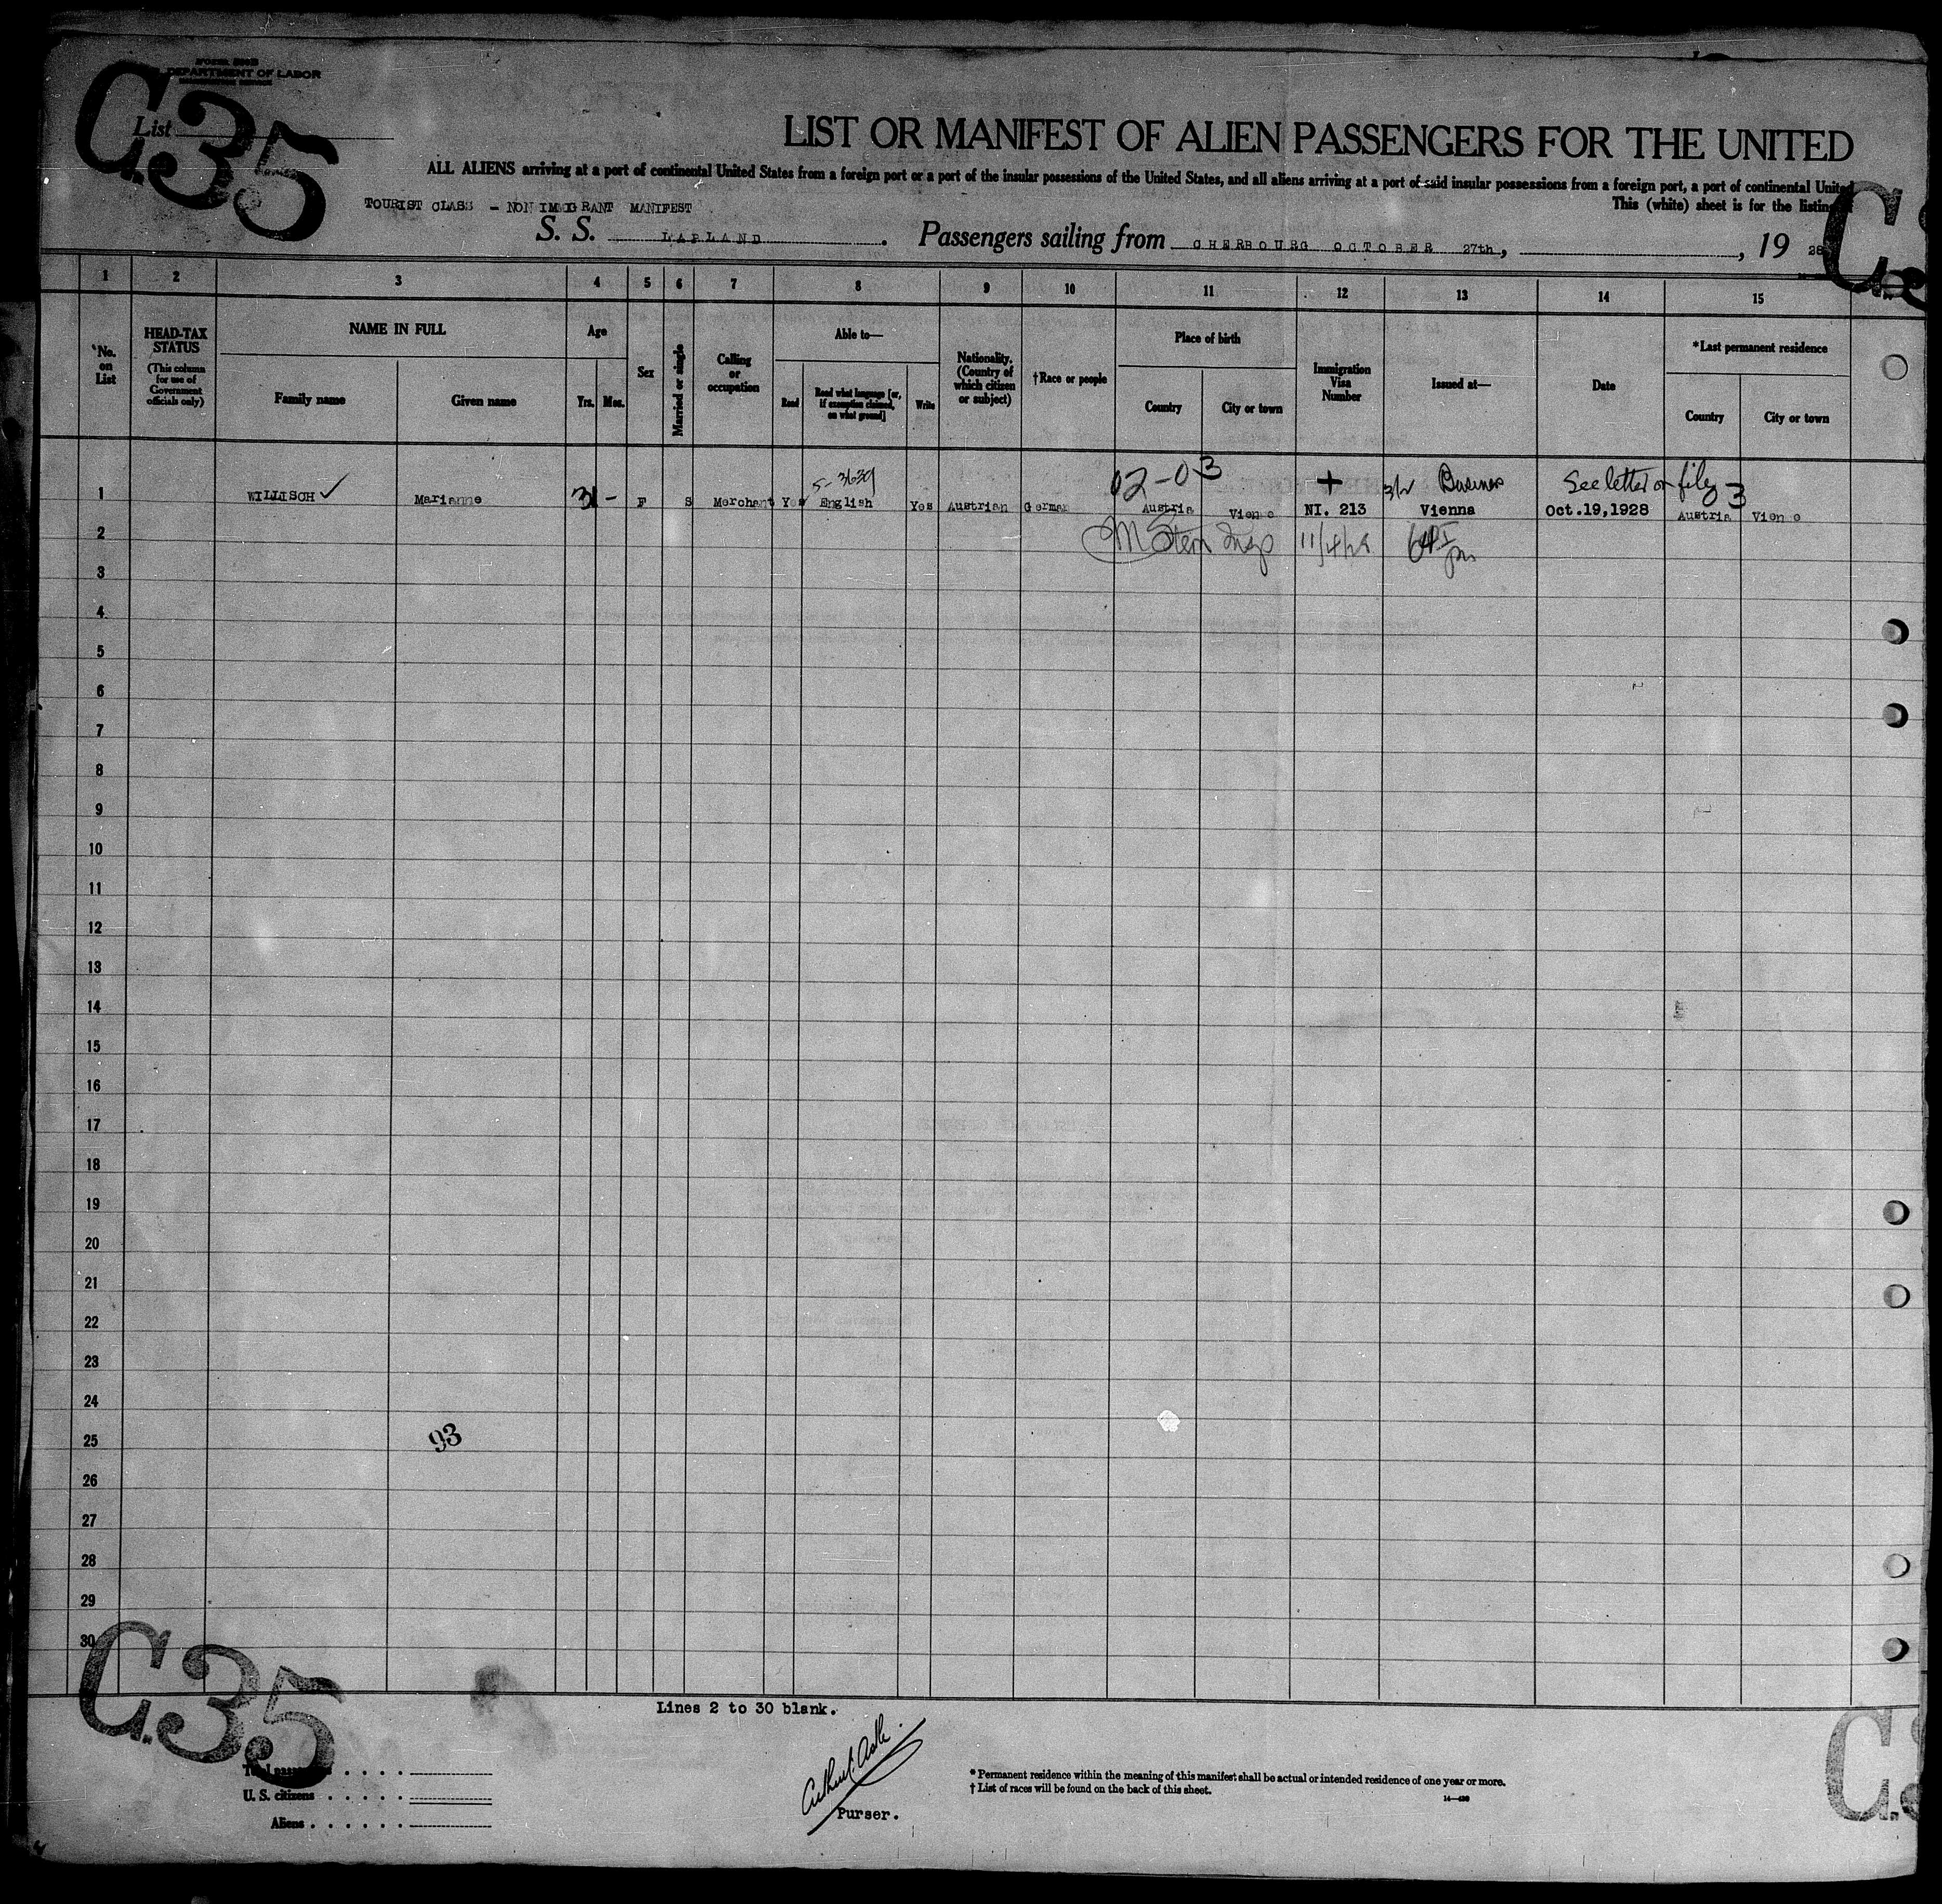 DEPARTMENT OF LABOR
C.35
List
LIST OR MANIFEST OF ALIEN PASSENGERS FOR THE UNITED
ALL ALIENS arriving at a port of continental United States from a foreign port or a port of the insular possessions of the United States, and all aliens arriving at a port of said insular possessions from a foreign port, a port of continental United
This (white) sheet is for the listing
TOURIST CLASS - NON IMMIGRANT MANIFEST
S. S. LAPLAND. Passengers sailing from CHERBOURG OCTOBER 27th, , 19 28
1 2 3 4 5 6 7 8 9 10 11 12 13 14 15
No. on List
HEAD-TAX STATUS
(This column for use of Government officials only)
NAME IN FULL
Family name
Given name
Age
Yrs. Mos.
Sex
Married or single
Calling or occupation
Able to—
Read
Read what language [or, if exemption claimed, on what ground]
Write
Nationality. (Country of which citizen or subject)
†Race or people
Place of birth
Country
City or town
Immigration Visa Number
Issued at—
Date
*Last permanent residence
Country
City or town
5-3639
02-03 + Business See letter on file 3
1 WILLISCH Marianne 31 - F S Merchant Yes English Yes Austrian German Austria NI. 213 Vienna Oct.19,1928 Austria
2 M Stern Insp 11/4/28
3
4
5
6
7
8
9
10
11
12
13
14
15
16
17
18
19
20
21
22
23
24
25 93
26
27
28
29
30
C.35
Lines 2 to 30 blank.
U. S. citizens
Aliens
Purser.
* Permanent residence within the meaning of this manifest shall be actual or intended residence of one year or more.
† List of races will be found on the back of this sheet.